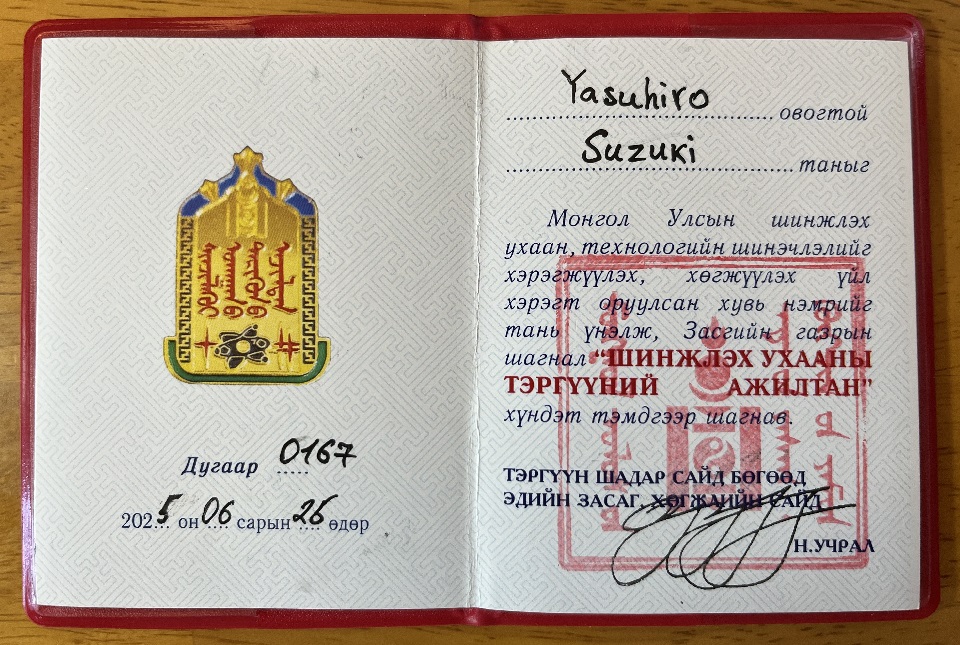 Дугаар 0167
2025 он 06 сарын 26 өдөр
Yasuhiro овогтой
Suzuki таныг
Монгол Улсын шинжлэх
ухаан, технологийн шинэчлэлийг
хэрэгжүүлэх, хөгжүүлэх үйл
хэрэгт оруулсан хувь нэмрийг
тань үнэлж, Засгийн газрын
шагнал “ШИНЖЛЭХ УХААНЫ
ТЭРГҮҮНИЙ АЖИЛТАН”
хүндэт тэмдгээр шагнав.
ТЭРГҮҮН ШАДАР САЙД БӨГӨӨД
ЭДИЙН ЗАСАГ, ХӨГЖЛИЙН САЙД
Н.УЧРАЛ